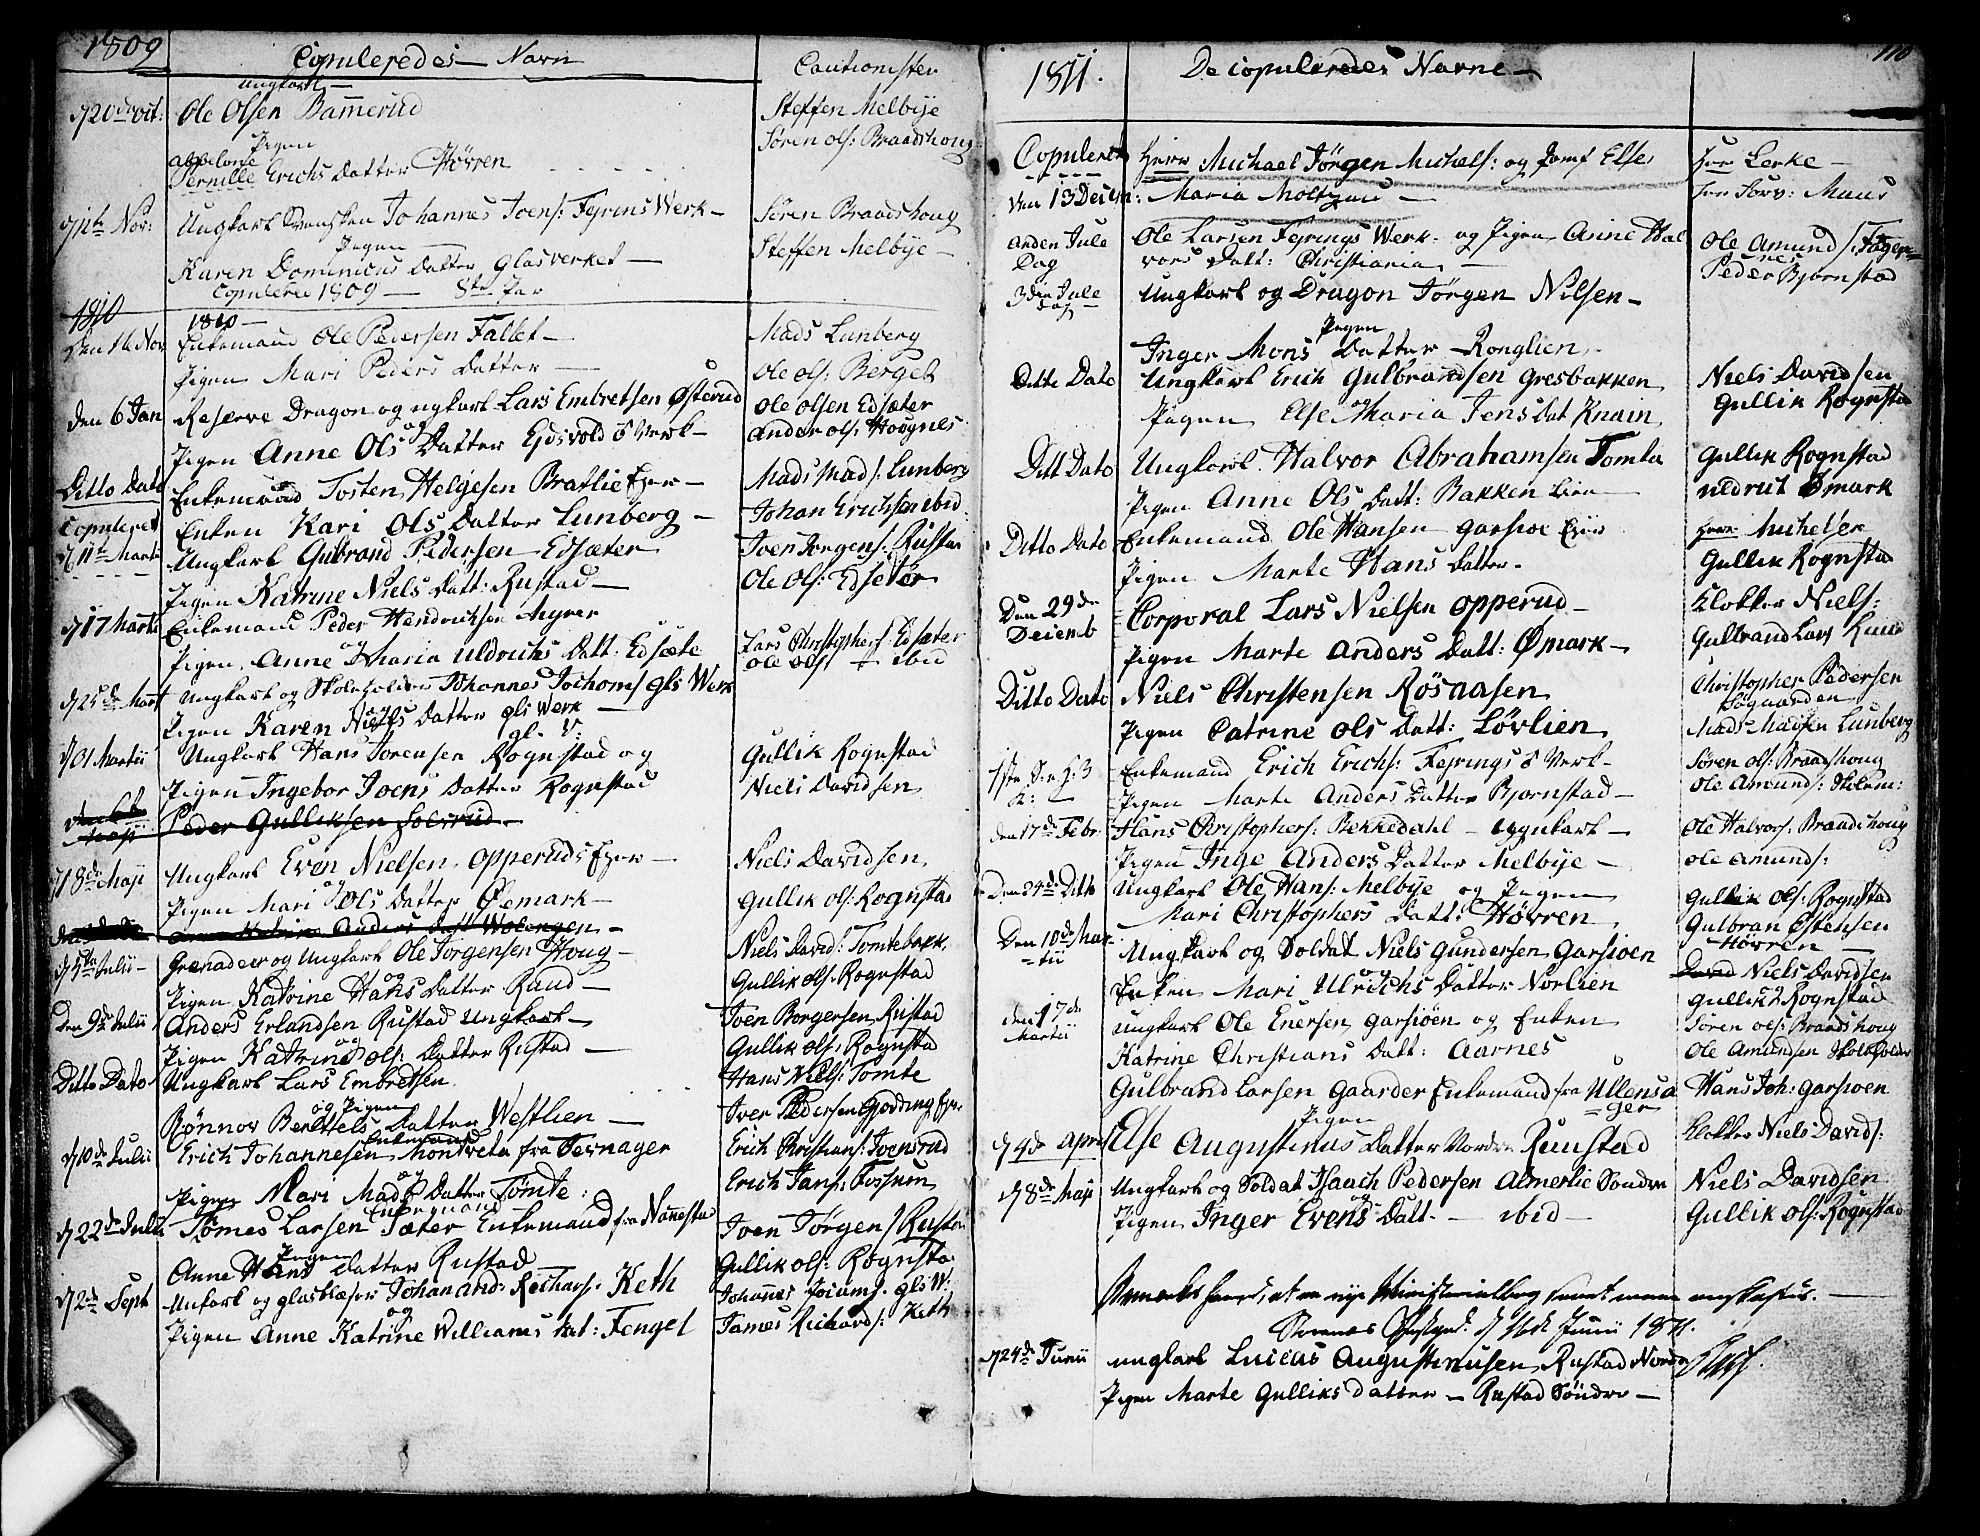 1809
Copuleredes Navn
Cautionister
Ungkarl
d 20de oct: Ole Olsen Bamerud
Steffen Melbye
Pigen
Sören ols: Braadshoug
Abbelone
Pernille Erichs Datter Hövren
d 11te Nov: Ungkarl Svensken Johannes Joens: Fyrins Werk
Sören Braadshoug
Pigen
Steffen Melbye
Karen Dominicus Datter Glasverket
Copuleret 1809 8te Par
1810
1810
Den 16 Nov Enkemand Ole Pedersen Fallet
Mads Lunberg
Pigen Mari Peders Datter
Ole ols: Berget
den 6 Jan Reserve Dragon og ugkarl Lars Embretsen Østerud
Ole Olsen Edsæter
og
Pigen Anne Ols Datter Ejdsvolds Verk
Ander ols: Hoognes
Ditto Dato Enkemand Tosten Helgesen Bratlie Ejer
Mads Mads: Lunberg
Enken Kari Ols Datter Lunberg
Johan Erichsen ibid:
Copuleret
d 11te Marti Ungkarl Gulbrand Pedersen Edsæter
Joen Jörgens: Rustad
Pigen Katrine Niels Datt: Rustad
Ole Ols: Edsæter
d 17 Marti Enkemand Peder Hendrichsen Myrer
og
Pigen Anne Maria Uldrichs Datt: Edsæte
Lars Christophers: Edsæter
Ole Ols: ibid
d 25de Mart Ungkarl og Skoleholder Johannes Jochoms Gls Werk
Pigen Karen Niels Datter gls Werk
gl. V:
d 01 Martii Ungkarl Hans Sorensen Rognstad og
Gullik Rognstad
Pigen Ingebor Joens Datter Rognstad
Niels Davidsen
Peder Gulliksen Soerrud
d 8de Maji Ungkarl Even Nielsen Opperuds Ejer
Niels Davidsen
og
Pigen Mari Ols Datter Øemark
Gullik ols: Rognstad
Anne Katrine Anders Datt Wolengen
d 5te Julii Grenadeer og Ungkarl Ole Jörgensen Houg
Niels David: Tomtebakk
og
Pigen Katrine Hans Datter Rund
Gullik ols: Rognstad
Den 9de Julii Anders Erlandsen Rustad Ungkarl
Joen Borgersen Rustad
og
Pigen Katrine ols: Datter Rustad
Gullik ols: Rognstad
Ditto Dato Ungkarl Lars Embretsen
Hans Niels: Tomte
og Pigen
Rönnov Berthels Datter Westlien
Iver Pedersen Gjödding Ejer
Enkemand
d 10de Julii Erich Johannesen Hontveta fra Fernager
Erich Christians: Joensrud
og
Pigen Mari Mads Datter Tömte
Erich Jans: Fossum
Enkemand
d 22de Julii Tomes Larsen Sæter Enkemand fra Nannestad
Joen Jörgens Rustad
Pigen
Anne Hans Datter Rustad
Gullik ols: Rognsta
d 2de Sept Unkarl og glasblæser Johan And: Richars: Keth
Johannes Jocums: gls W:
og
Pigen Anne Katrine Williams Dat: Fenget
James Richards: Keth
1811.
De copuleredes Navne
110
Copuleret Herr Michael Jörgen Michels: og Jomf Else
For Lerke
den 13 Decem: Maria Moltzau
For Sorv: Maus
Anden Jule Dag
Ole Larsen Fejrings Werk og Pigen Anne Hal
vors Datt: Christiania
Ole Amunds Fager
nes
Peder Bjørnstad
3die Jule dag
Ungkarl og Dragon Jörgen Nilsen
Pigen
Inger Mons Datter Ronglien
Ditto Dato Ungkarl Erich Gulbrandsen Gresbakken
Niels Davidsen
og
Pigen Else Maria Jens Dat Knain
Gullik Rognsta
Ditt Dato Ungkarl Halvor Abrahamsen Tomta
Gullik Rognstad
Pigen Anne Ols Datt: Bakken Eier
Uldrut Ømark
Ditto Dato Enkemand Ole Hansen Garsioe Eier
Herr Michelsen
Pigen Marte Hans Datter
Gullik Rognstad
Den 29de Decemb
Corporal Lars Nielsen Opperud
Klokker Niels:
Pigen Marte Anders Datt: Ømark
Gulbrand Lars
Ditto Dato Niels Christensen Rösaasen
Christopher Pedersen
Sogaarden
Pigen Catrine Ols Datt: Lövlien
Mads Madsen Lunberg
Enkemand Erich Erichs: Fejrings Verk
Sören ols: Braadshoug
Pigen Marte Anders Datter Bjornstad
Ole Amunds: Skolem:
den 17de Febr Hans Christophers: Bekkedahl Ugnkarl
Ole Halvors: Braadshoug
Pigen Inge Anders Datter Melbye
Ole Amunds:
Den 24de Ditto Ungkarl Ole Hans: Melbye og Pigen
Gullik Ols: Rognstad
Mari Christophers Datt: Hövren
Gulbran Østensen
Hövren
Den 10de Mar
tii
Ungkarl og Soldat Niels Gundersen Garsioen
David Niels Davidsen
og
Enken Mari Ulrichs Datter Norlien
Gullik Rognstad
den 17de Martii
Ungkarl Ole Enersen Garsiöen og Enken
Sören ols: Braadshoug
Katrine Christians Datt: Aarnes
Ole Amundsen Skoleholder
Gulbrand Larsen Gaarder Enkemand fra Ullensa
ger
Hans Joh: Garsioen
Pigen
d 4de April Else Augustinus Datter Nordre Ruustad
Klokker Niels Davids:
d 8de Maji Ungkarl og Soldat Isaach Pedersen Almerlie Sondre
Niels Davidsen
og
Pigen Inger Evens Datt. ibid
Gullik Ols: Rognstad
Anmerkes herved, at en nye Ministerialbog
d 16de Junii 1811.
d 24de Junii ungkarl Lucas Augustinusen Rustad Nordre
Pigen Marte Gulliks datter Rustad Söndre